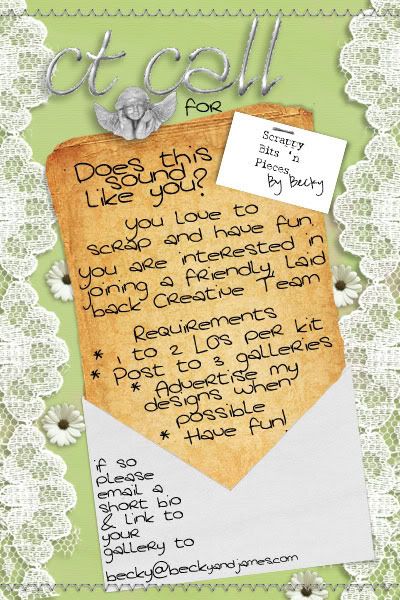 ct call
for
Scrappy
Bits 'n
Pieces
By Becky
Does this
sound
like you?
you love to
scrap and have fun
you are interested in
joining a friendly, laid
back Creative Team
Requirements
* 1 to 2 LOs per kit
* Post to 3 galleries
* Advertise my
designs when
possible
* Have fun!
if so
please
email a
short bio
& link to
your
gallery to
becky@beckyandjames.com